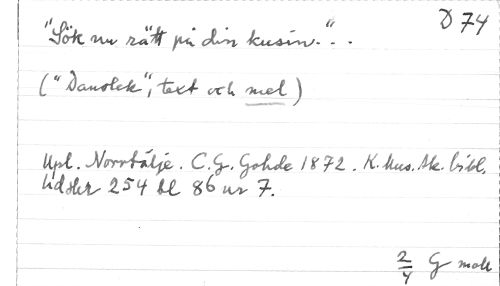 D 74
"Sök nu rätt på din kusin..."
("Danslek", text och mel)
Upl. Norrtälje. C.G. Gohde 1872. K. Mus. Ak. bibl.
254 bl 86 nr 7.
2/4 G moll